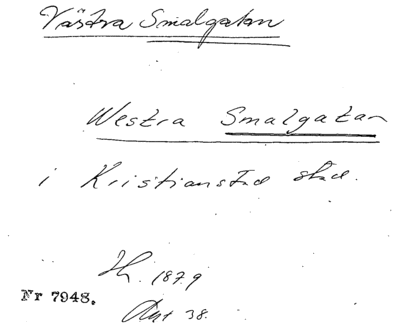 Västra Smalgatan
Westra Smalgatan
i Kristianstad stad.
Hr. 1879
Nr 7948.
Ant 38.